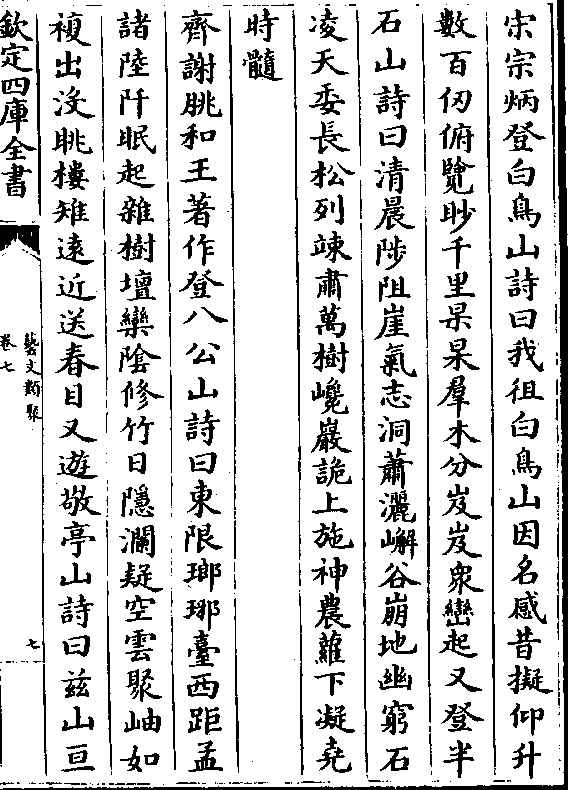 宋宗炳登白鳥山詩曰我徂白鳥山因名感昔擬仰升
數百仞俯覽眇千里杲杲羣木分岌岌衆巒起又登半
石山詩曰清晨陟阻崖氣志洞蕭灑嶰谷崩地幽窮石
凌天委長松列竦肅萬樹巉巖詭上施神農蘿下凝堯
時髓
齊謝朓和王著作登八公山詩曰東限瑯琊臺西距孟
諸陸阡眠起雜樹壇欒隂修竹日隱澗疑空雲聚岫如
複出沒眺樓雉遠近送春目又遊敬亭山詩曰兹山亘
欽定四庫全書
藝文類聚
卷七
七